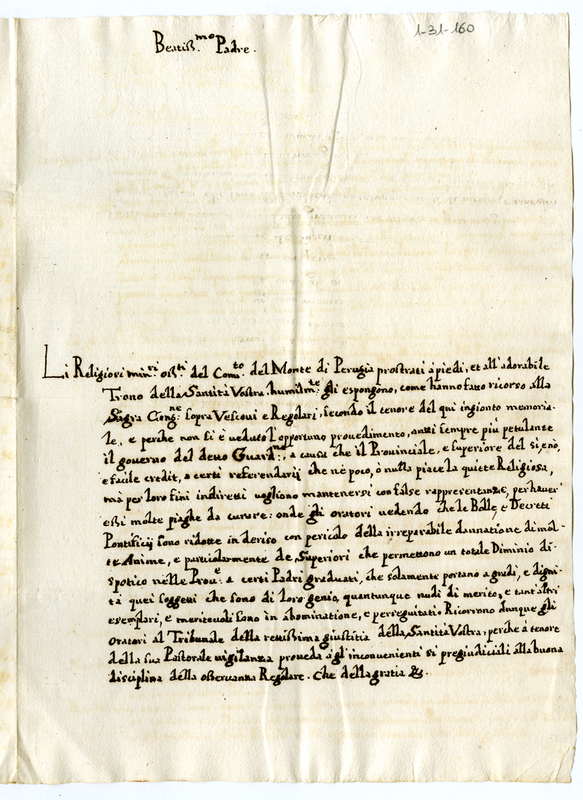 1-31-160
Beatiss.mo Padre.
Li Religiosi min.ri oss.ti del Conv.to del Monte di Perugia prostrati à piedi, et all'adorabile
Trono della Santità Vostra humilm.te gli espongono, come hanno fatto ricorso alla
Sagra Cong.ne sopra Vescovi e Regolari, secondo il tenore del qui ingionto memoria-
le, e perche non si è veduto l'opportuno provedimento, anzi sempre piú petulante
il governo del detto Guard.no, a causa che il Provinciale, e superiore del
e facile credit, a certi referendarij che nè poco, ò nulla piace la quiete Religiosa,
mà per loro fini indiretti vogliono mantenersi con false rappresentanze, per haver
essi molte piaghe da curare: onde gli oratori vedendo che le Bolle, e Decreti
Pontificij sono ridotte in deriso con pericolo della irreparabile dannatione di mol-
te Anime, e particolarmente de Superiori che permettono un totale Diminio di-
spotico nelle Prov.e a certi Padri graduati, che solamente portano a gradi, e digni-
tà quei soggetti che sono di loro genio, quantunque nudi di merito, e tant'altri
esemplari, e meritevoli sono in abominatione, e perseguitati. Ricorrono dunque gli
Oratori al Tribunale della rettissima giustitia della Santità Vostra, perche à tenore
della sua Pastorale vigilanza proveda à gl'inconvenienti si pregiudiciali alla buona
disciplina della osservanza Regolare. Che della gratia &c.